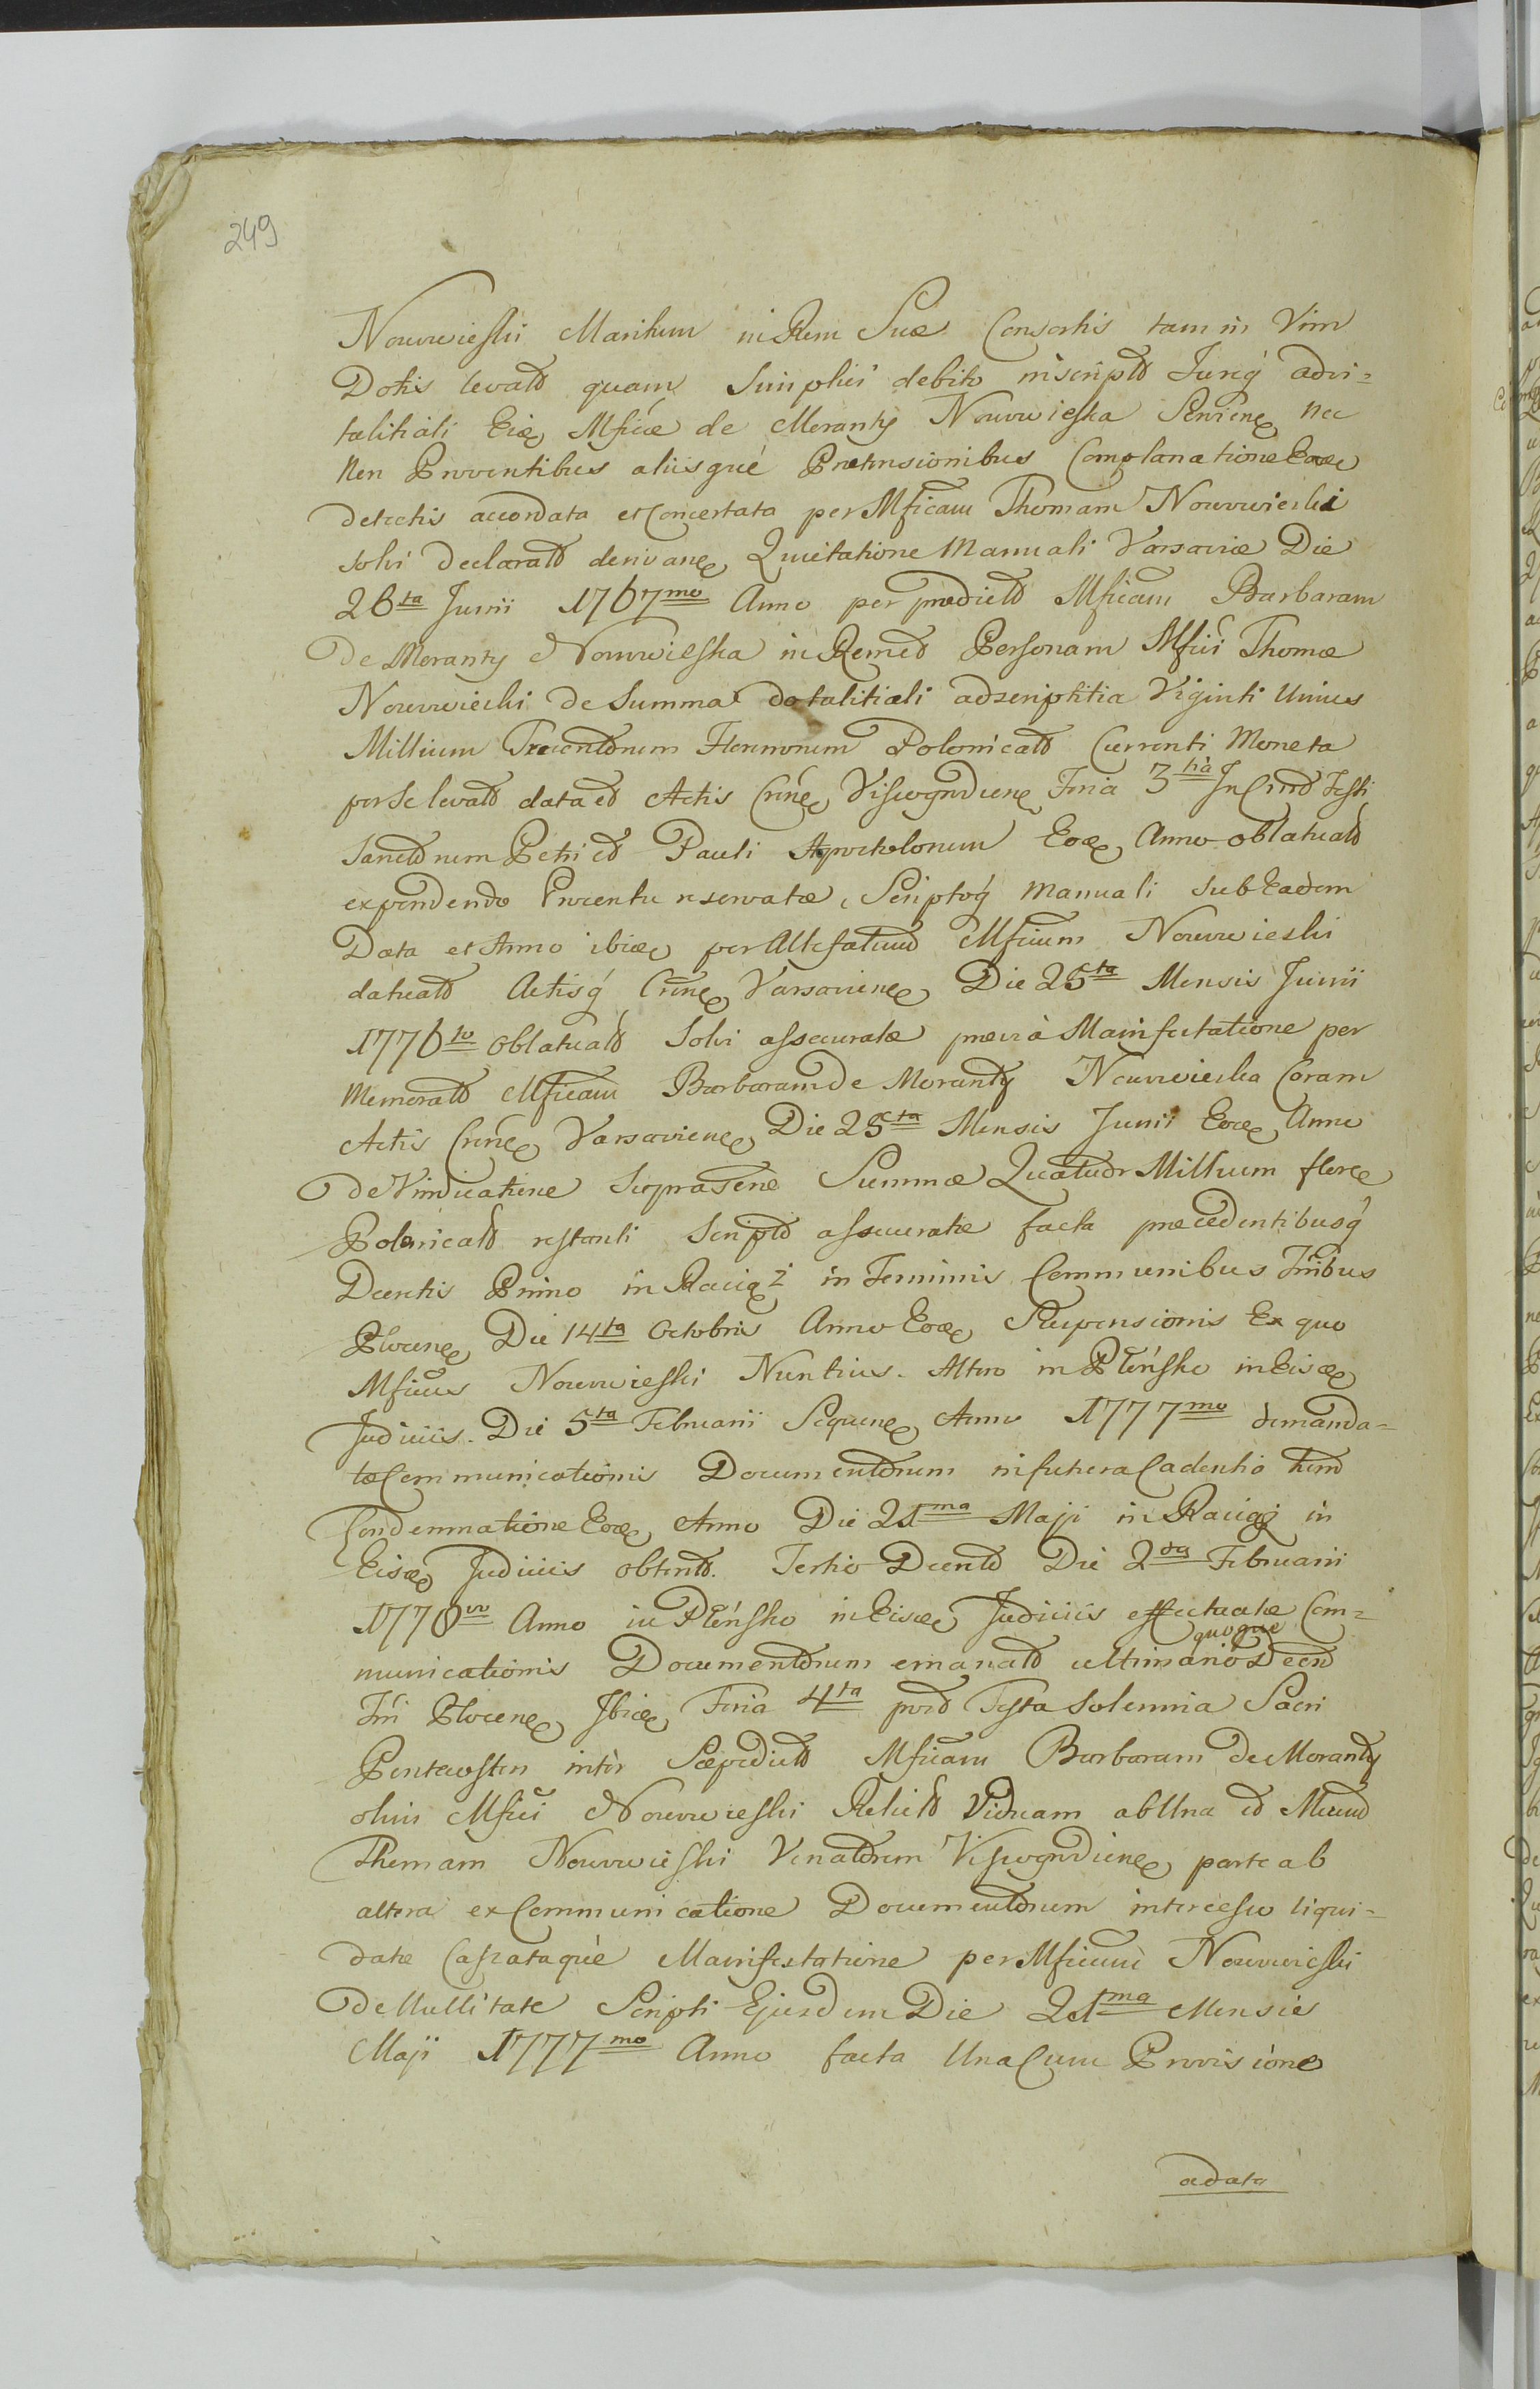 249
Nowowieyski Maritum in Rem Suæ Consortis tam in Vim
Dotis levatt quam Simplici debito inscriptt Jureq advi=
talitiali Eiæ Mficæ de Moranty Nowowieyska Servien Nec
Non Proventibus aliisque Prætensionibus Complanatione Eoæ
detectis accordata et Concertata per Mficam Thomam Nowowieiski
Solvi declaratt derivan Quietatione Manuali Varsaviæ Die
26ta Junii 1767mo Anno per prædictt Mficam Barbaram
De Moranty Nowowieska in Rem et Personam Mfici Thomæ
Nowowieiski de Summa dotalitiali adscriptitia Viginti Unius
Millium Trecentorum Florenorum Polonicatt Currenti Moneta
per Se levatt data et Actis Crine Viscogrodien Feria 3tia In Crud Festi
Sanctorum Petri et Pauli Apostolorum Eoæ Anno oblatuatt
expendendo Proventu reservatæ, Scriptoq Manuali Sub Eadem
Data et Anno ibiæ per Attestatum Mficum Nowowieski
datuatt Actisq Crine Varsavien Die 25ta Mensis Junii
1776to Oblatuatt Solvi assecuratæ prævia Manifestatione per
Memoratt Mficam Barbaram de Moranty Nowowieiska Coram
Actis Crine Varsavien Die 25ta Mensis Junii Eoæ Anno
de Vindicatione Suprascnæ Summæ Quatuor Millium flore
Polonicatt restanti Scriptt assecuratæ facta præcedentibusq
Decretis Primo in Raciąż in Terminis Communibus Trribus
Plocen Die 14ta Octobris Anno Eoæ Suspensionis Ex quo
Mficus Nowowieski Nuntius. Altero in Płońsko in Eisæ
Judiciis. Die 5ta Februarii Sequen Anno 1777mo demanda=
tæ Communicationis Documentorum in futera Cadentio tum
Condemnatione Eoæ Anno Die 21ma Maji in Raciąż in
Eisæ Judiciis obtentt. Tertio Decrett Die 2da Februarii
1778vo Anno in Płońsko in Eisæ Judiciis effectuatæ Com=
quoque
municationis Documentorum emanatt ultimario Decret
Trri Plocen Ibiæ Feria 4ta post Festa Solennia Sacri
Pentecosten inter Sæpedictt Mficam Barbaram de Moranty
olim Mfici Nowowieski Relictt Viduam ab Una et Mficum
Thomam Nowowieski Venatorem Viscogrodien parte ab
altera ex Communicatione Documentorum intercesso liqui=
datæ Cassataque Manifestatione per Mficum Nowowieski
De Nullitate Scripti Ejusdem Die 21ma Mensis
Maji 1777mo Anno facta Una Cum Provisione
a data